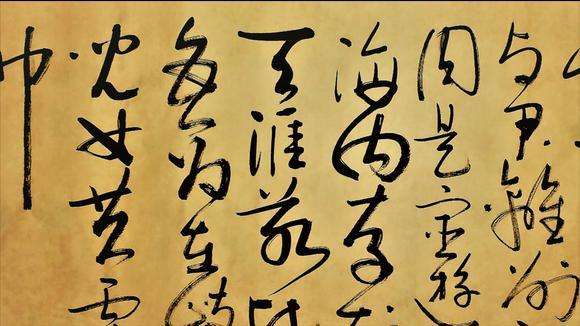 与君離别
同是宦遊
海内存知
天涯若比
無為在歧
兒女共霑
巾